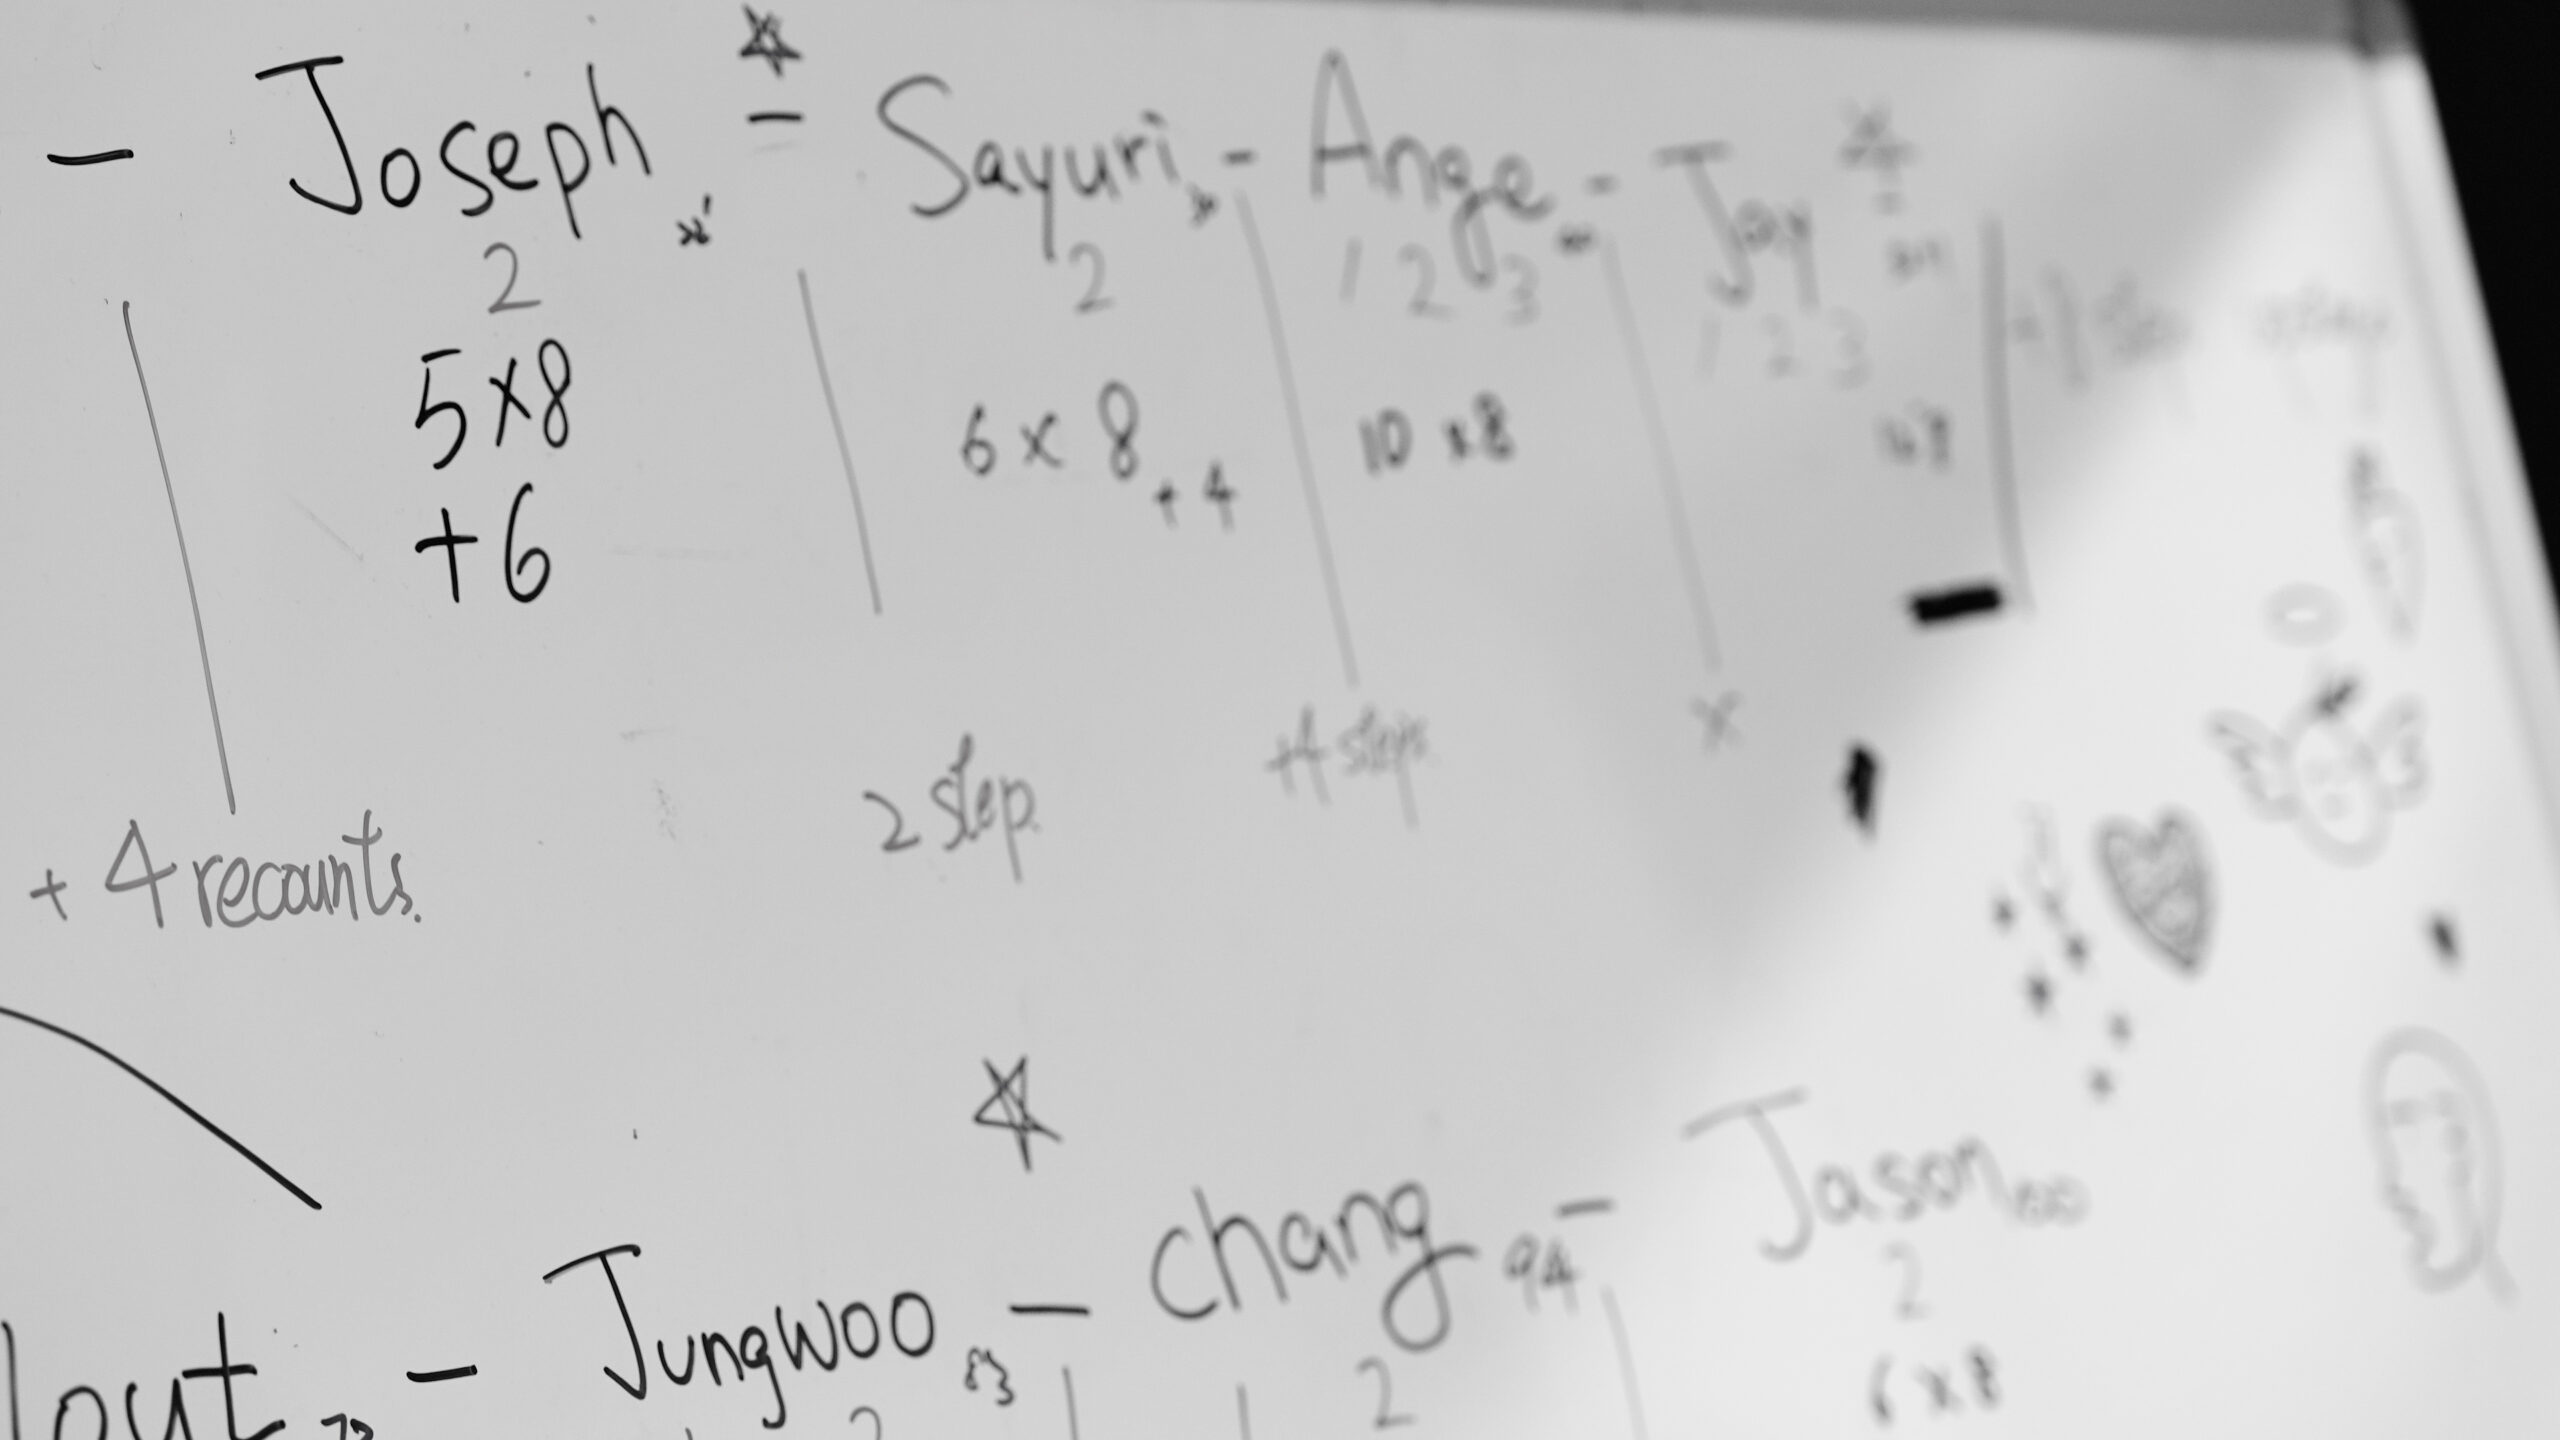 - Joseph - Sayuri - Ange - Jay
2 2 1 2 3 1 2 3
5x8 6 x 8 + 4 10 x 8
+6
+ 4 recounts. 2 step. +4 steps. x
lout - Jungwoo - Chang 94 - Jason
2 2
6 x 8